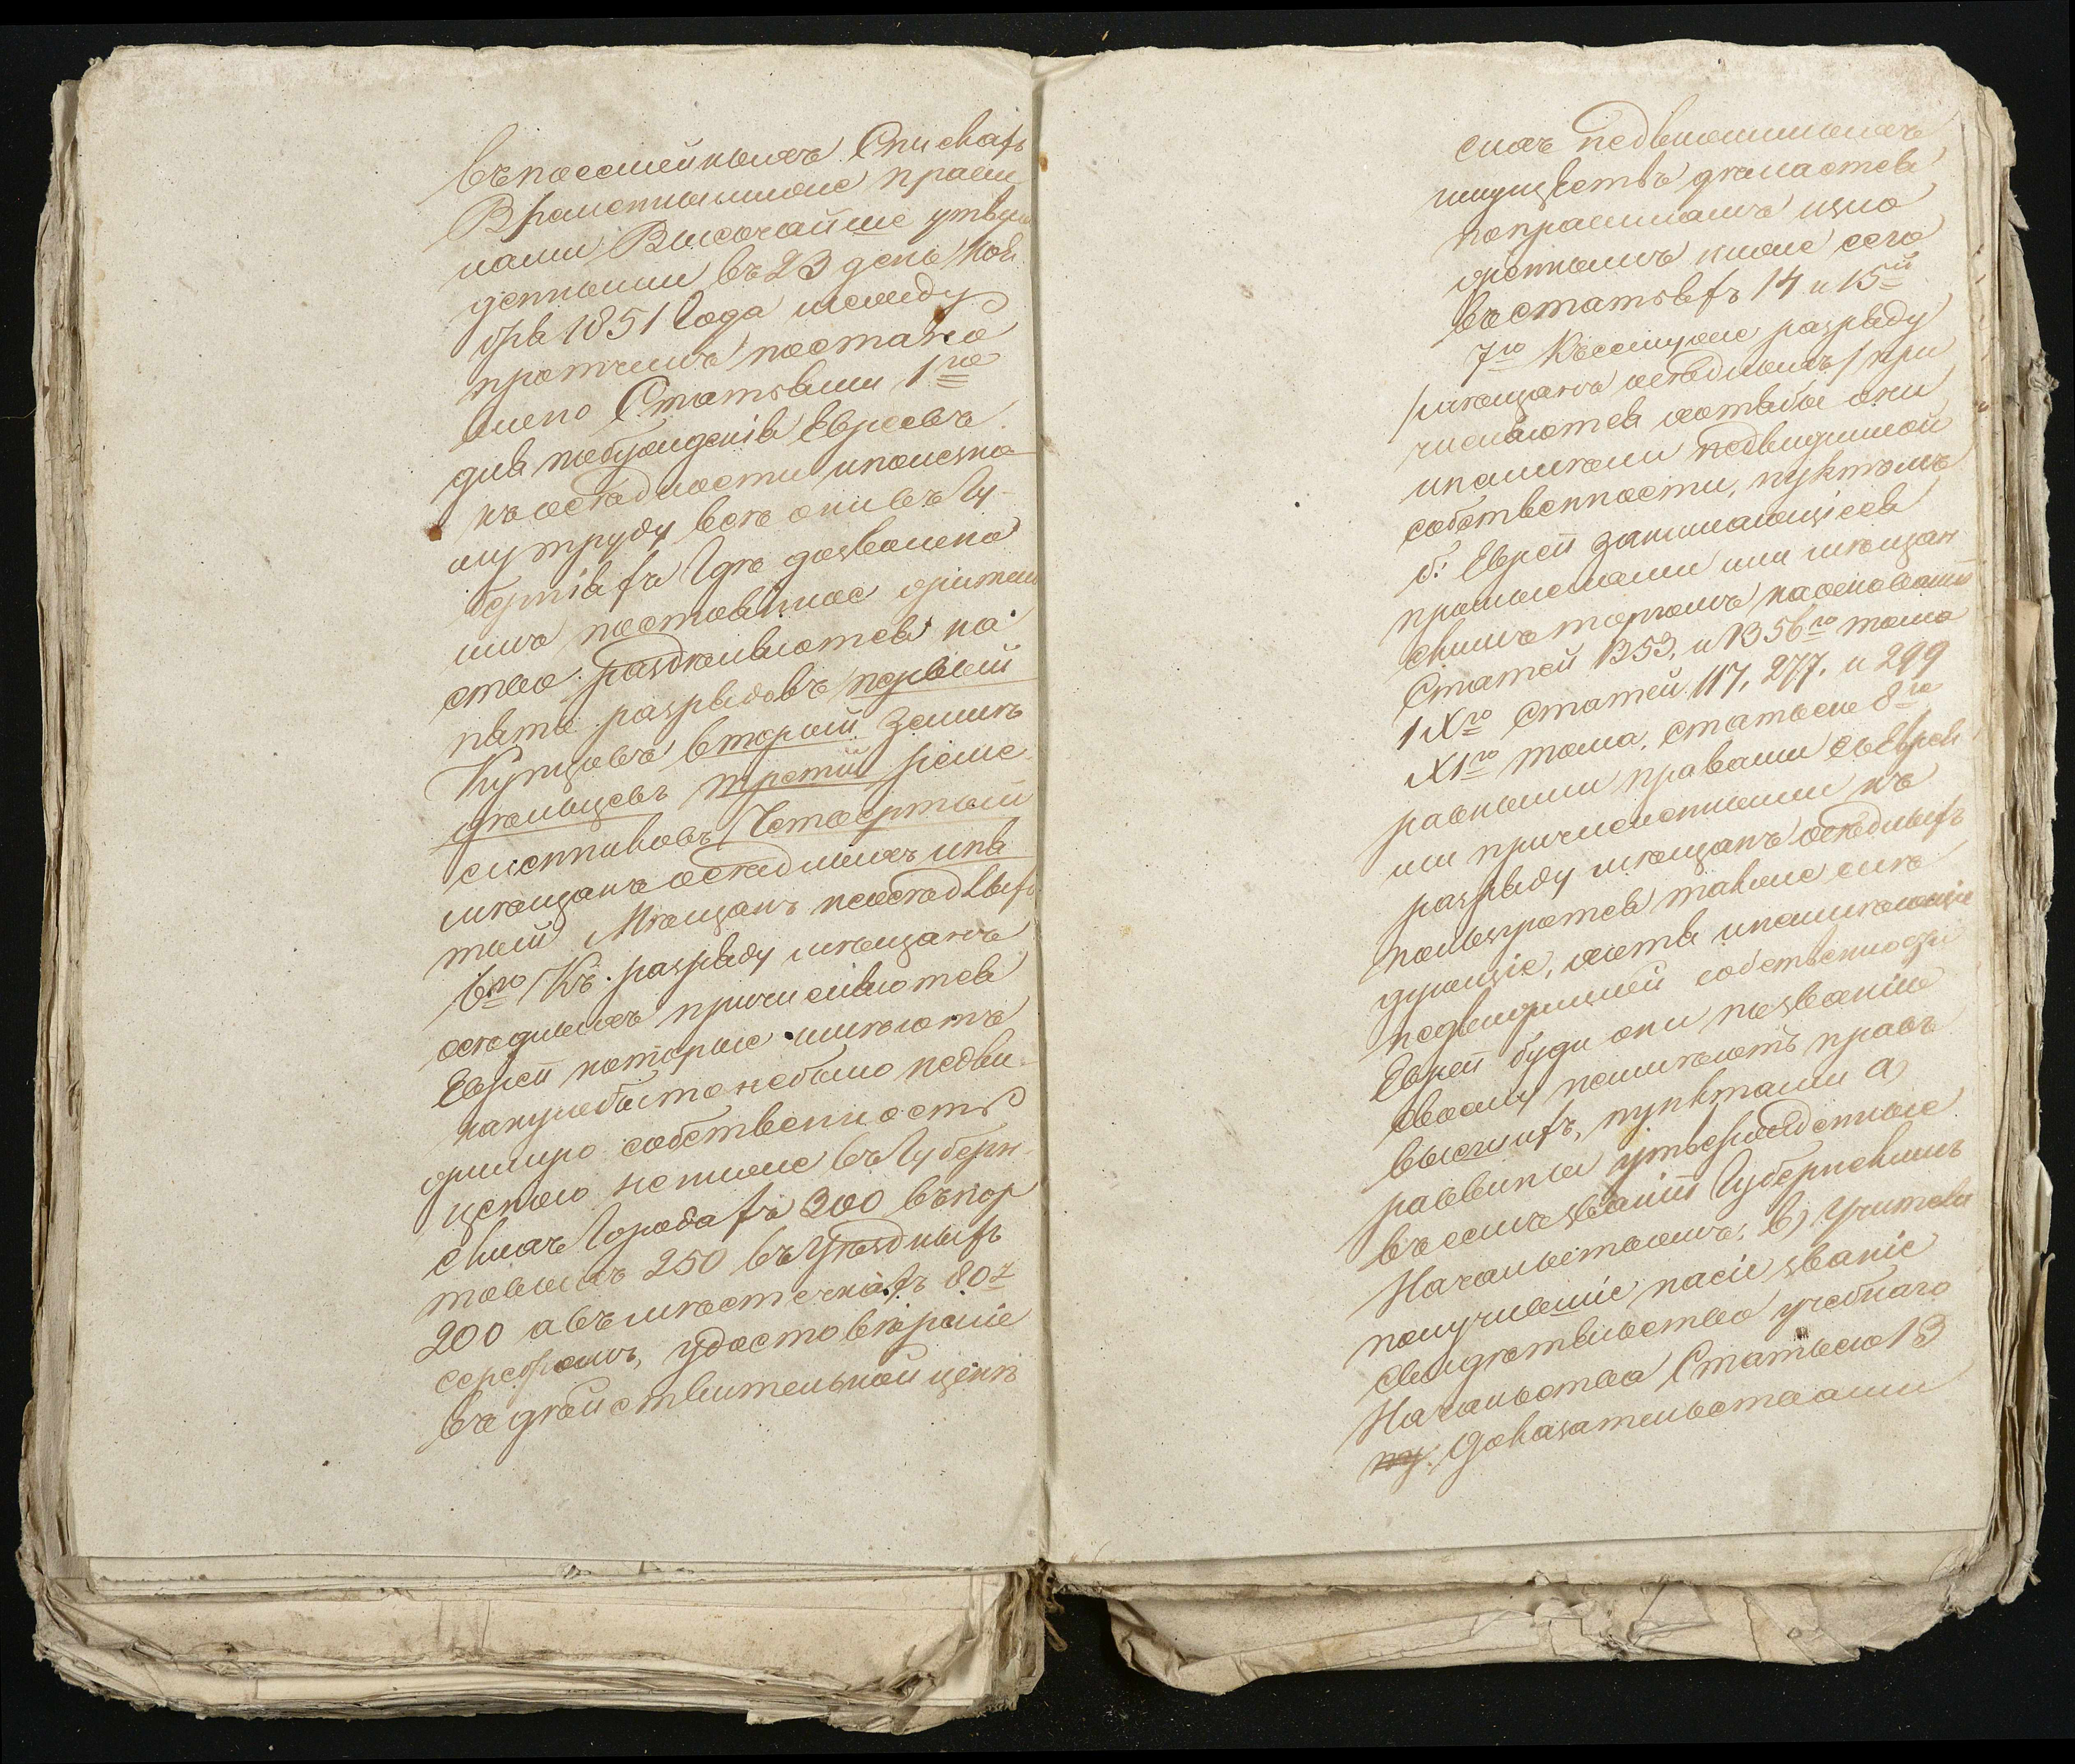 въ посемейныхъ Спискахъ
Временными прави
лами Высочайше утвер
жденными въ 23 день Ноя
бря 1851 Года между
протчимъ постано
влено Статьями 1ю
для побужденія Евреевъ
къ осѣдлости и полезно
му труду всѣ они въ Гу-
берніяхъ гдѣ дозволено
имъ постоянное житель
ство: раздѣляются на
пять разрядовъ первый
Купцовъ второй Земле
дѣльцевъ третій реме
сленниковъ Четвертый
мѣщанъ осѣдлыхъ и пя
тый Мѣщанъ неосѣдлыхъ
6ю Къ разряду мѣщанъ
осѣдлыхъ причисляются
Евреи которые имѣютъ
какую бы то небыло недви
жимую собственность
цѣною не ниже въ Губерн
скихъ Городахъ 300 въ пор
товыхъ 250 въ Уѣздныхъ
200 а въ мѣстечкахъ 80 р
серебромъ, удостовѣреніе
въ дѣйствительной цѣнѣ
сихъ недвижимыхъ
имуществъ делается
по правиламъ изло
женнымъ ниже сего
въ статьяхъ 14 и 15й
7ю Къ сему же разряду
/мѣщанъ осѣдлыхъ/ при
числяются хотя бы они
и неимѣли недвижимой
собственности, пунктомъ
б. Евреи занимающіеся
промыслами или мѣщан
скимъ торгомъ на основаніи
Статей 1353, и 1356го тома
IXго Статей 117, 277, и 299
XIго тома, статьею 8ю
равными правами съ Евреи
ми причисленными къ
разряду мѣщанъ осѣдлыхъ
пользуются также слѣ
дующіе, хотя и неимѣющіе
недвижимой собственности
Евреи буди они по званію
своему неимѣютъ правъ
высшихъ, пунктами а)
раввины утвержденные
въ семъ званіи Губернскимъ
Начальствомъ; в) Учителя
получившіе на сіе званіе
свидѣтельство учебнаго
Начальства Статьею 13
Доказательствами